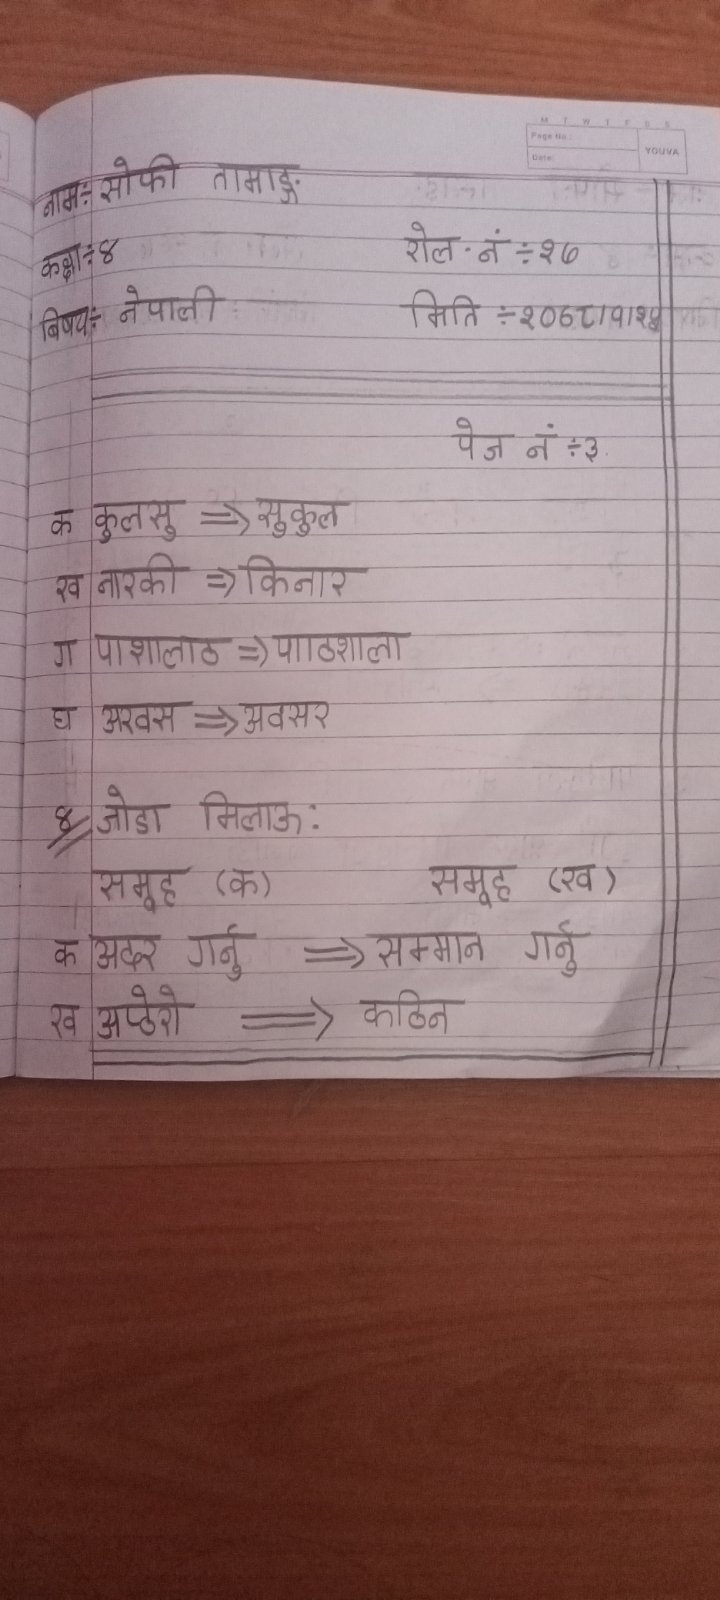 M T W T F S S
Page No.:
Date:
YOUVA
नामः÷ सोफी तामाङ्ग
कक्षा÷४ रोल.नं ÷२७
बिषयः÷ नेपाली मिति ÷२०७८।१।२५
पेज नं ÷३.
क कुलसु ⇒ सुकुल
ख नारकी ⇒ किनार
ग पाशालाठ ⇒ पााठशाला
घ अरवस ⇒ अवसर
४ जोडा मिलाऊ:
समूह (क) समूह (ख)
क अदर गर्नु ⇒ सम्मान गर्नु
ख अप्ठेरो ⇒ कठिन